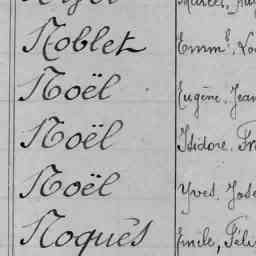 Noblet Emm.l,
Noël Eugène, Jean
Noël Isidore, Fr
Noël Yves, Jose
Noquès Emile, Féli